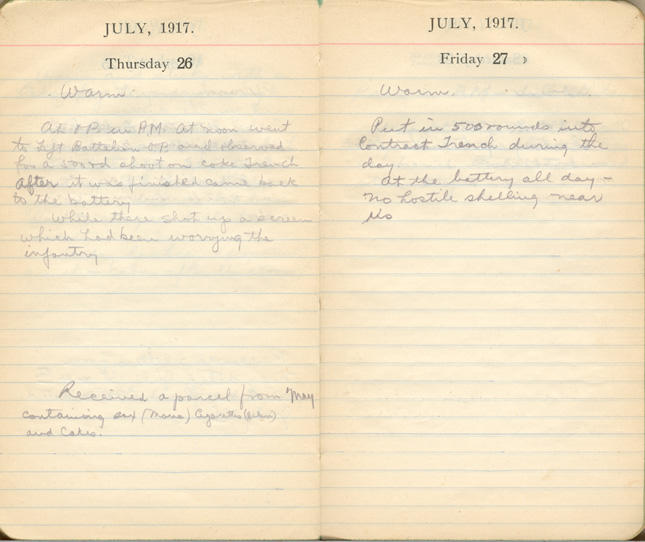 JULY, 1917.
Thursday 26
Warm.
At O.P. in P.M. At noon went
to Left Battalion O.P. and observed
for a 500 rd shoot on Coke Trench
After it was finished came back
to the battery
While there shot up a screen
which had been worrying the
infantry
Received a parcel from May
containing sox (Mona) Cigarettes
and Cakes.
JULY, 1917.
Friday 27
Warm.
Put in 500 rounds into
Contract Trench during the
day.
At the battery all day -
No hostile shelling near
us